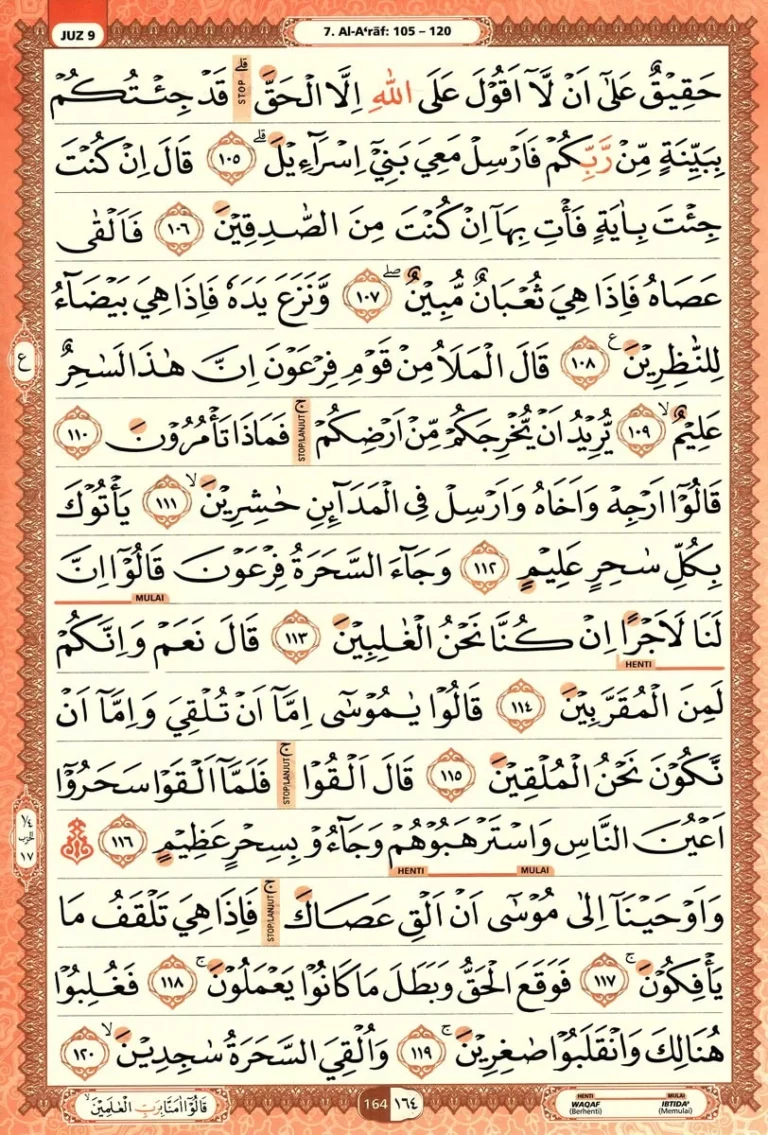 JUZ 9
7. Al-A‘rāf: 105 – 120
حَقِيْقٌ عَلٰٓى اَنْ لَّآ اَقُوْلَ عَلَى اللّٰهِ اِلَّا الْحَقَّۗ STOP قَدْ جِئْتُكُمْ
بِبَيِّنَةٍ مِّنْ رَّبِّكُمْ فَاَرْسِلْ مَعِيَ بَنِيْٓ اِسْرَاۤءِيْلَۗ ١٠٥ قَالَ اِنْ كُنْتَ
جِئْتَ بِاٰيَةٍ فَأْتِ بِهَآ اِنْ كُنْتَ مِنَ الصّٰدِقِيْنَ ١٠٦ فَاَلْقٰى
عَصَاهُ فَاِذَا هِيَ ثُعْبَانٌ مُّبِيْنٌۖ ١٠٧ وَّنَزَعَ يَدَهٗ فَاِذَا هِيَ بَيْضَاۤءُ
ع
لِلنّٰظِرِيْنَ ࣖ ١٠٨ قَالَ الْمَلَاُ مِنْ قَوْمِ فِرْعَوْنَ اِنَّ هٰذَا لَسٰحِرٌ
عَلِيْمٌۙ ١٠٩ يُّرِيْدُ اَنْ يُّخْرِجَكُمْ مِّنْ اَرْضِكُمْۚ STOP/LANJUT فَمَاذَا تَأْمُرُوْنَ ١١٠
قَالُوْٓا اَرْجِهْ وَاَخَاهُ وَاَرْسِلْ فِى الْمَدَاۤىِٕنِ حٰشِرِيْنَۙ ١١١ يَأْتُوْكَ
بِكُلِّ سٰحِرٍ عَلِيْمٍ ١١٢ وَجَاۤءَ السَّحَرَةُ فِرْعَوْنَ قَالُوْٓا اِنَّ
MULAI
لَنَا لَاَجْرًا اِنْ كُنَّا نَحْنُ الْغٰلِبِيْنَ ١١٣ قَالَ نَعَمْ وَاِنَّكُمْ
HENTI
لَمِنَ الْمُقَرَّبِيْنَ ١١٤ قَالُوْا يٰمُوْسٰٓى اِمَّآ اَنْ تُلْقِيَ وَاِمَّآ اَنْ
نَّكُوْنَ نَحْنُ الْمُلْقِيْنَ ١١٥ قَالَ اَلْقُوْاۚ STOP/LANJUT فَلَمَّآ اَلْقَوْا سَحَرُوْٓا
١/٤ الحزب ١٧
اَعْيُنَ النَّاسِ وَاسْتَرْهَبُوْهُمْ وَجَاۤءُوْ بِسِحْرٍ عَظِيْمٍ ١١٦
MULAI HENTI
وَاَوْحَيْنَآ اِلٰى مُوْسٰٓى اَنْ اَلْقِ عَصَاكَۚ STOP/LANJUT فَاِذَا هِيَ تَلْقَفُ مَا
يَأْفِكُوْنَۚ ١١٧ فَوَقَعَ الْحَقُّ وَبَطَلَ مَا كَانُوْا يَعْمَلُوْنَۚ ١١٨ فَغُلِبُوْا
هُنَالِكَ وَانْقَلَبُوْا صٰغِرِيْنَۚ ١١٩ وَاُلْقِيَ السَّحَرَةُ سٰجِدِيْنَۙ ١٢٠
قَالُوْٓا اٰمَنَّا بِرَبِّ الْعٰلَمِيْنَۙ
164 ١٦٤
HENTI MULAI
WAQAF IBTIDA'
(Berhenti) (Memulai)